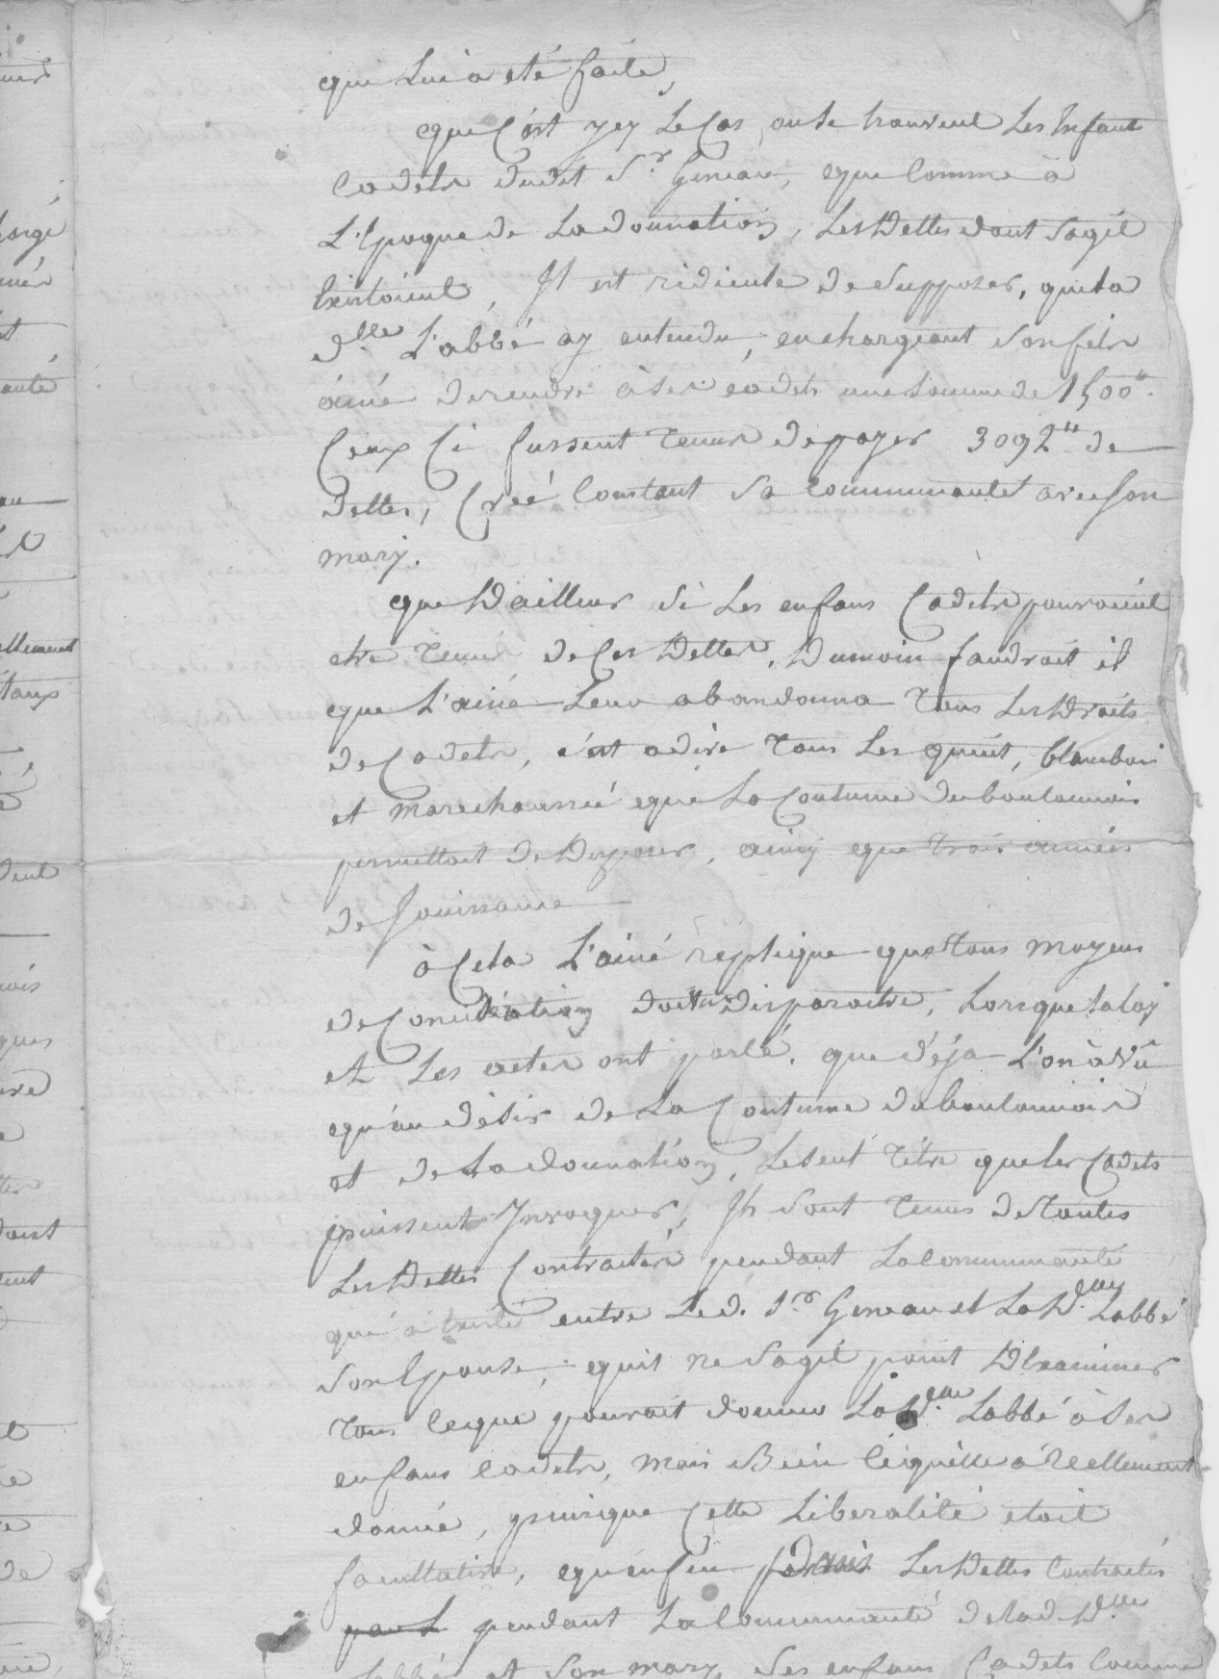 que Lui a eté faite,
que C'est ycy Le Cas, ou se trouvent Les Enfants
Cadets dudit Sr. Geneau, que Comme à
L'Epoque de La donnation, Les Dettes dont Sagit
Existoient, Il est ridicule de Supposer, que La
dlle. L'abbé ay entendu, en chargeant Son fils
ainé de rendre à Ses cadets une somme de 1500tt.
Ceux Ci fussent tenus de payer 3092tt de
Dettes, Creé Constant Sa Communauté avec Son
mary.
que D'ailleur Si Les enfans Cadets pouroient
etre tenus de Ces Dettes, Dumoin faudroit il
que L'ainé Leur abandonna tous Les Droits
de Cadets, c'est adire tous Les quint, blancbois
et marechaussée que La Coutume du boulonnois
permettoit de Disposer, ainsy que trois années
de Jouissance
à Cela L'ainé replique que tous moyens
de Conciliation doit Disparoitre, Lorsque La loy
et Les actes ont parlé. que déja L'on à Vû
qu'au désir de La Coutume du boulonnois
et de La donnation, Le Seul titre que les Cadets
puissent Invoquer, Ils Sont tenus de toutes
Les Dettes Contractées pendant La Communauté
qui à Existé entre Led. Sr. Geneau et La Dlle. Labbé
Son Epouse, quil ne Sagit point D'Examiner
tous Ce que pouroit donner La Dlle. Labbé à Ses
enfans cadets, mais Bien Ce quelle à réellement
donné, puisque Cette Liberalité etoit
facultative, qu'enfin Les Dettes Contractés
par L pendant La Communauté de Lad. Dlle.
Labbé et Son mary, Ses enfans Cadets Comme